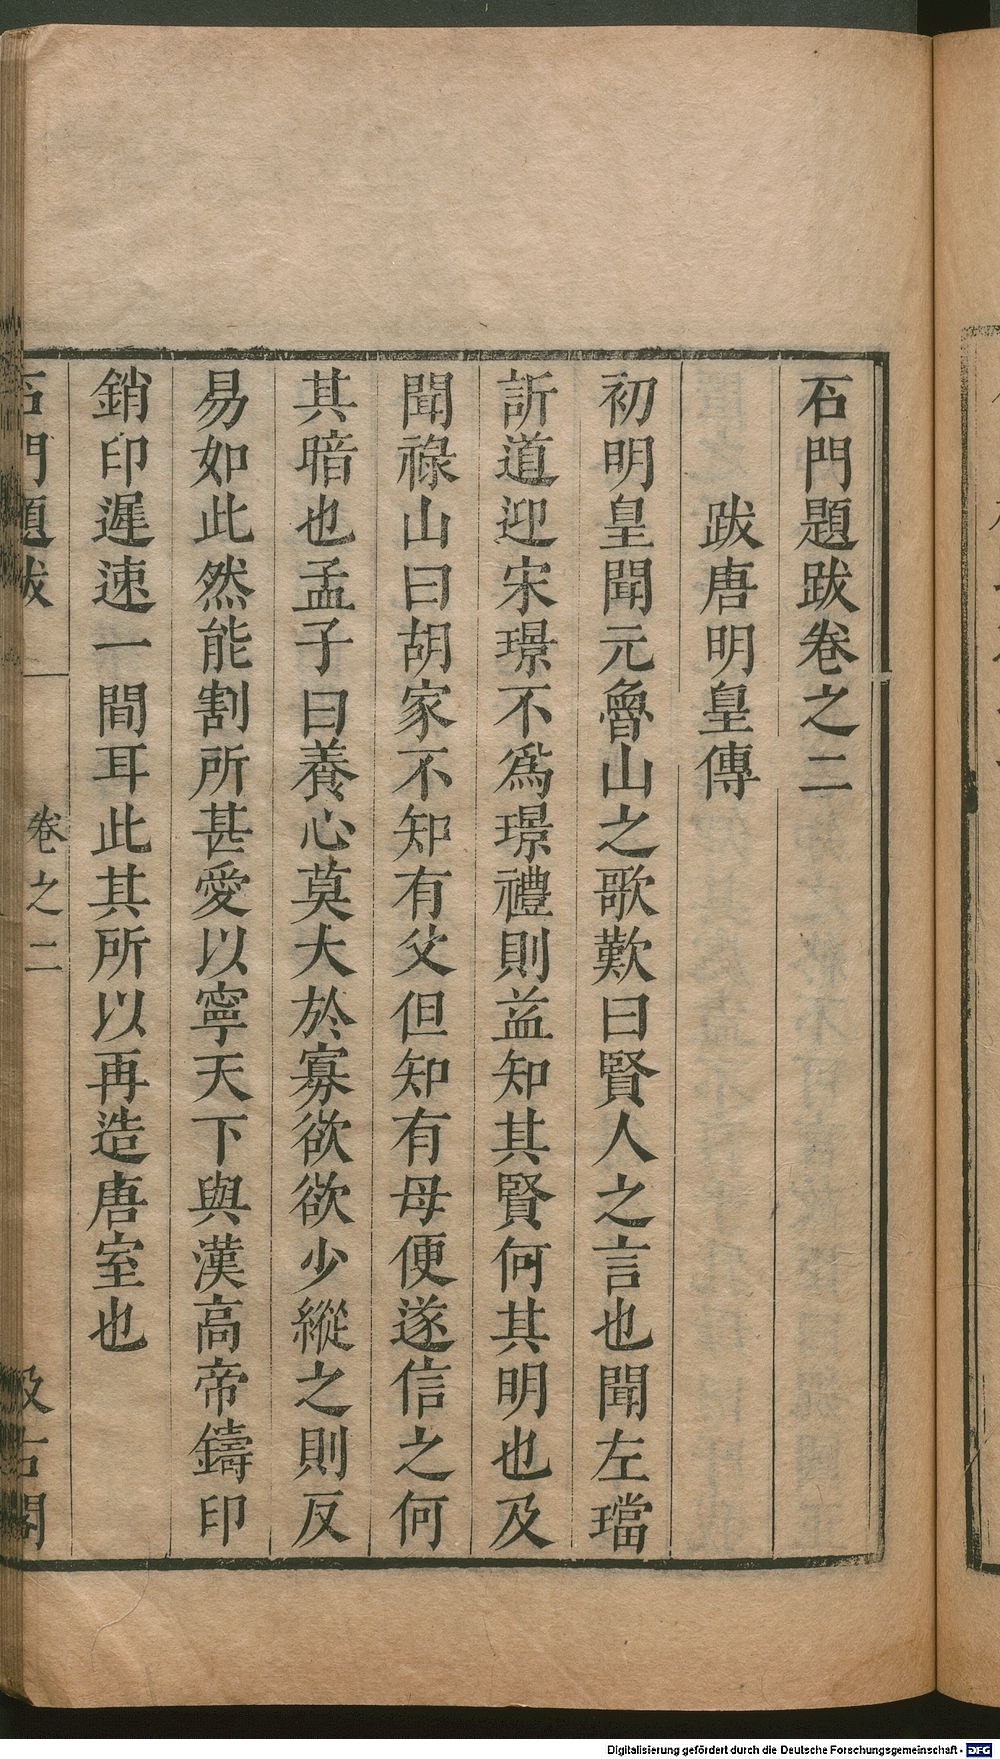 石門題跋卷之二
跋唐明皇傳
初明皇聞元魯山之歌歎曰賢人之言也聞左璫
訴道迎宋璟不爲璟禮則益知其賢何其明也及
聞祿山曰胡家不知有父但知有母便遂信之何
其暗也孟子曰養心莫大於寡欲欲少縱之則反
易如此然能割所甚愛以寧天下與漢高帝鑄印
銷印遲速一間耳此其所以再造唐室也
石門題跋 卷之二 汲古閣
Digitalisierung gefördert durch die Deutsche Forschungsgemeinschaft - DFG